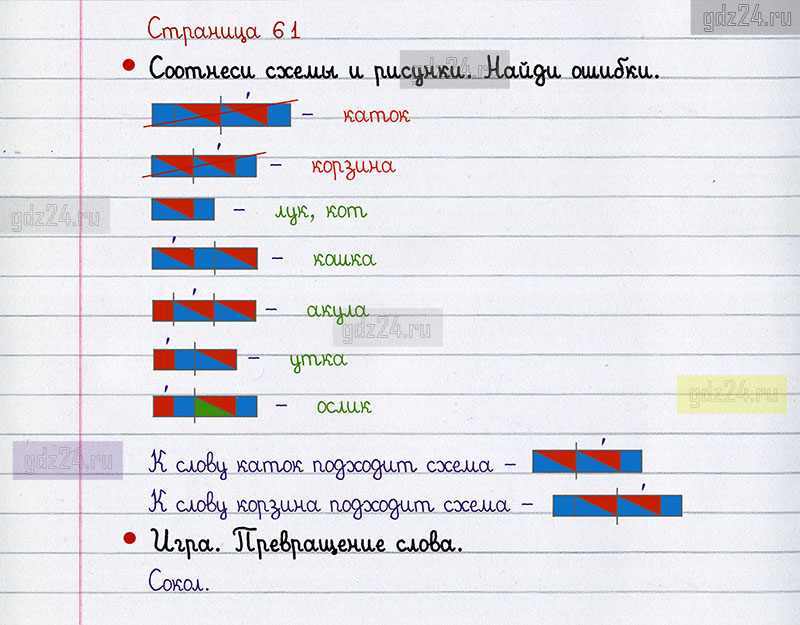 gdz24.ru
Страница 61
Соотнеси схемы и рисунки. Найди ошибки.
gdz24.ru
– каток
– корзина
gdz24.ru
– лук, кот
– кошка
– акула
gdz24.ru
– утка
gdz24.ru
– ослик
gdz24.ru
К слову каток подходит схема –
К слову корзина подходит схема –
Игра. Превращение слова.
Сокол.